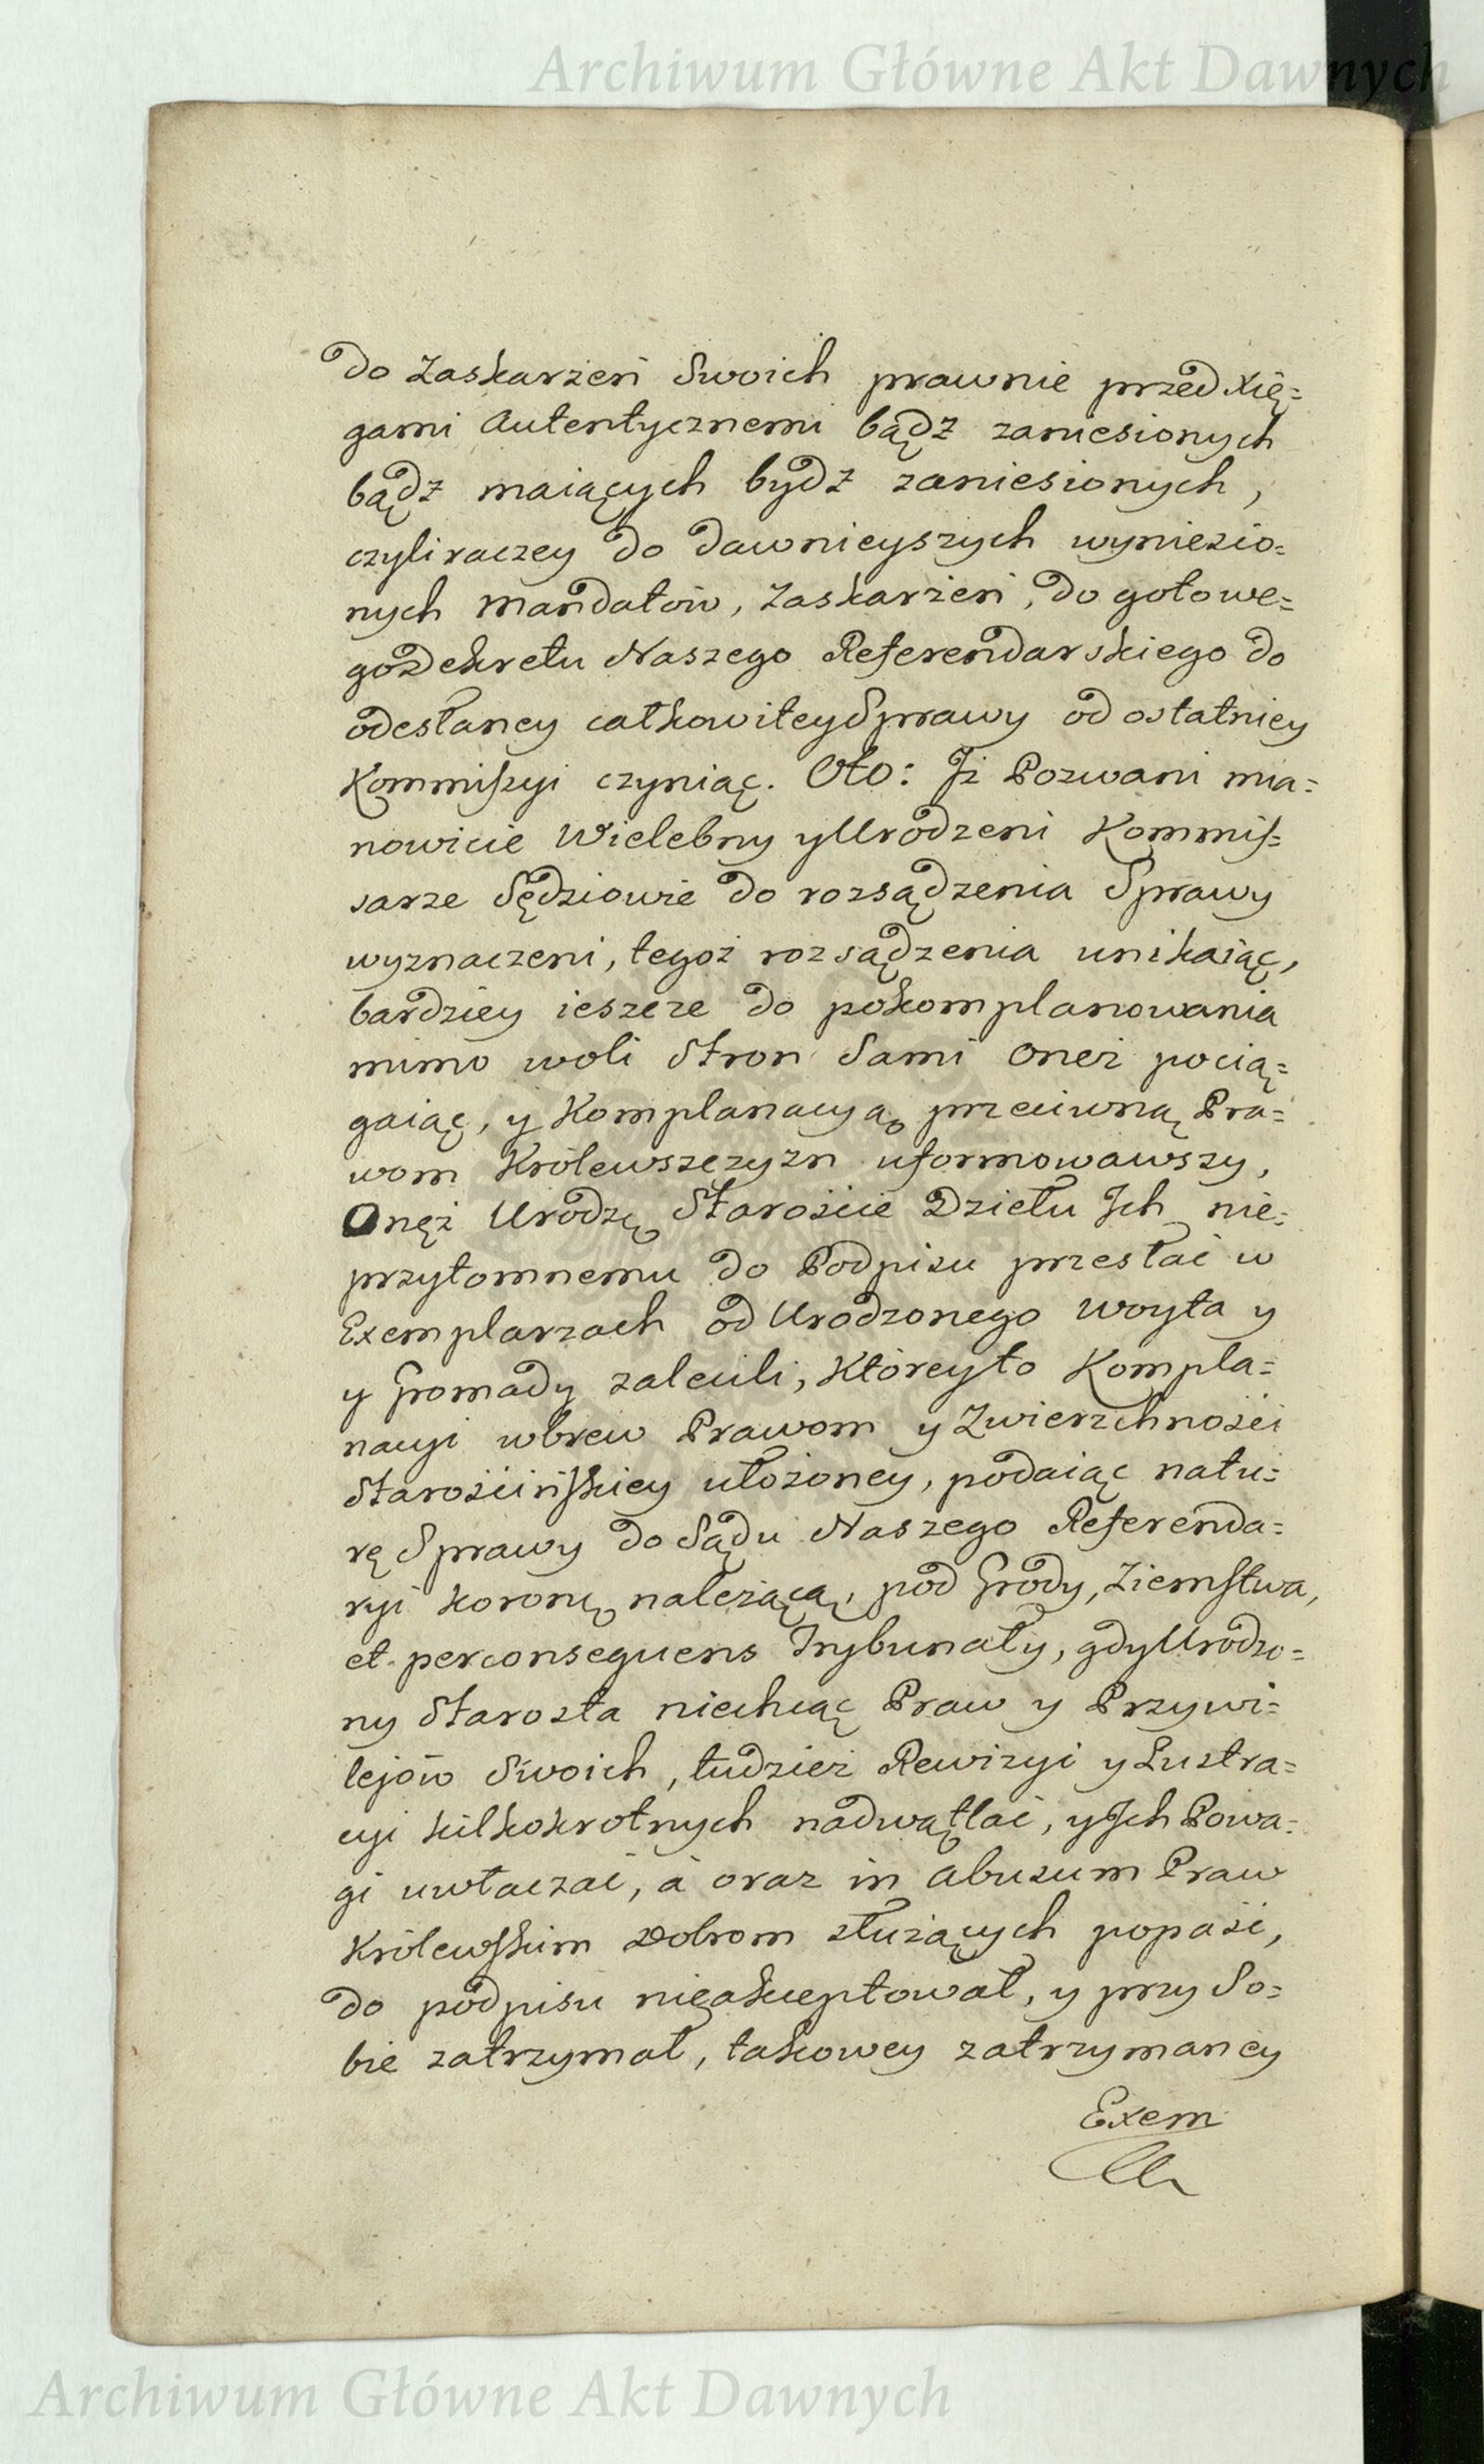 Archiwum Główne Akt Dawnych
do Zaskarzeń Swoich prawnie przed Xię=
gami Autentycznemi bądz zaniesionych
bądz maiących bydz zaniesionych,
czyli raczey do dawnieyszych wyniesio=
nych Mandatów, Zaskarzeń, do gotowe=
go Dekretu Naszego Referendarskiego do
odesłaney całkowitey Sprawy od ostatniey
Kommissyi czyniąc. Oto: Iż Pozwani mia=
nowicie Wielebny y Urodzeni Kommis=
sarze Sędziowie do rozsądzenia Sprawy
wyznaczeni, tegoż rozsądzenia unikaiąc,
bardziey ieszcze do pokomplanowania
mimo woli Stron Sami Oneż pocią=
gaiąc, y Komplanacyą przeciwną Pra=
wom Królewszczyzn uformowawszy,
Onęż Urodzo Starościе Dziełu Ich nie=
przytomnemu do Podpisu przesłać w
Exemplarzach od Urodzonego Woyta y
y Gromady zalecili, Któreyto Kompla=
nacyi wbrew Prawom y Zwierzchności
Starościńskiey ułożoney, podaiąc natu=
rę Sprawy do Sądu Naszego Referenda=
ryi Koronney należącą, pod Grody, Ziemstwa,
et perconsequens Trybunały, gdy Urodzo=
ny Starosta niechcąc Praw y Przywi=
lejów Swoich, tudzież Rewizyi y Lustra=
cyi kilkokrotnych nadwątlać, y Ich Powa=
gi uwłaczać, a oraz in abusum Praw
Królewskim Dobrom służących popaść,
do podpisu nieakceptował, y przy So=
bie zatrzymał, takowey zatrzymaney
Exem
Archiwum Główne Akt Dawnych